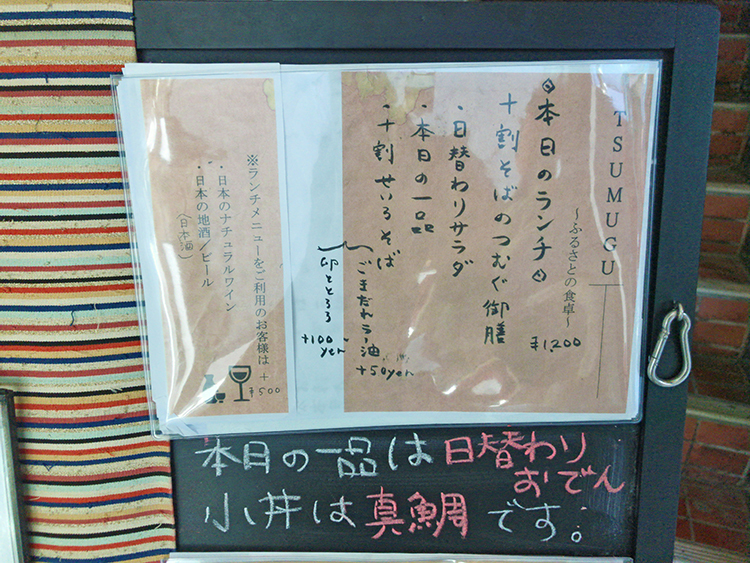 TSUMUGU
～ふるさとの食卓～
本日のランチ
十割そばのつむぐ御膳
¥1,200
・日替わりサラダ
・本日の一品
・十割せいろそば
ごまだれラー油
+50yen
卵ととろろ
+100yen
※ランチメニューをご利用のお客様は+
¥500
・日本のナチュラルワイン
・日本の地酒/ビール
(日本酒)
本日の一品は日替わり
おでん
小丼は真鯛です。